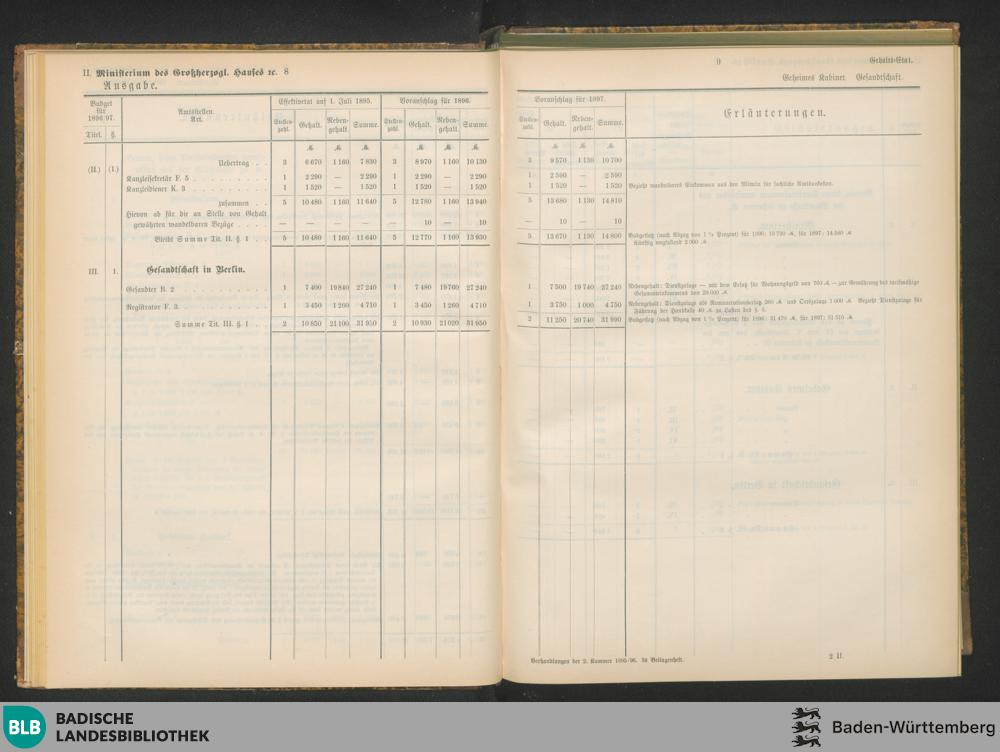 II. Ministerium des Großherzogl. Hauses ꝛc. 8
Ausgabe.
Budget für 1896/97. Amtsstellen. Art. Effektivetat auf 1. Juli 1895. Voranschlag für 1896.
Titel. §. Stellenzahl. Gehalt. Nebengehalt. Summe. Stellenzahl. Gehalt. Nebengehalt. Summe.
(II.) (1.) Uebertrag . . 3 6 670 1 160 7 830 3 8 970 1 160 10 130
Kanzleisekretär F. 5 . . . 1 2 290 — 2 290 1 2 290 — 2 290
Kanzleidiener K. 3 . . . 1 1 520 — 1 520 1 1 520 — 1 520
zusammen . . 5 10 480 1 160 11 640 5 12 780 1 160 13 940
Hievon ab für die an Stelle von Gehalt
gewährten wandelbaren Bezüge . . . — — — — — 10 — 10
Bleibt Summe Tit. II. §. 1 . . 5 10 480 1 160 11 640 5 12 770 1 160 13 930
III. 1. Gesandtschaft in Berlin.
Gesandter B. 2 . . . 1 7 400 19 840 27 240 1 7 480 19 760 27 240
Registrator F. 3 . . . 1 3 450 1 260 4 710 1 3 450 1 260 4 710
Summe Tit. III. §. 1 . . 2 10 850 21 100 31 950 2 10 930 21 020 31 950
9 Gehalts-Etat.
Geheimes Kabinet. Gesandtschaft.
Voranschlag für 1897. Erläuterungen.
Stellenzahl. Gehalt. Nebengehalt. Summe.
3 9 570 1 130 10 700
1 2 590 — 2 590
1 1 520 — 1 520 Bezieht wandelbares Einkommen aus den Mitteln für sachliche Amtsunkosten.
5 13 680 1 130 14 810
— 10 — 10
5 13 670 1 130 14 800 Budgetsatz (nach Abzug von 1 ½ Prozent) für 1896: 13 720 ℳ, für 1897: 14 580 ℳ
Künftig wegfallend 2 000 ℳ.
1 7 500 19 740 27 240 Nebengehalt: Dienstzulage — mit dem Ersatz für Wohnungsgeld von 760 ℳ — zur Gewährung des tarifmäßige
Gesammteinkommens von 28 000 ℳ.
1 3 750 1 000 4 750 Nebengehalt: Dienstzulage als Remunerationsersatz 260 ℳ und Ortszulage 1 000 ℳ. Bezieht Dienstzulage für
Führung der Handkasse 40 ℳ zu Lasten des §. 4.
2 11 250 20 740 31 990 Budgetsatz (nach Abzug von 1 ½ Prozent) für 1896: 31 470 ℳ, für 1897: 31 510 ℳ.
Verhandlungen der 2. Kammer 1895/96. 3s Beilagenheft.
2 II.
BLB BADISCHE
LANDESBIBLIOTHEK
Baden-Württemberg